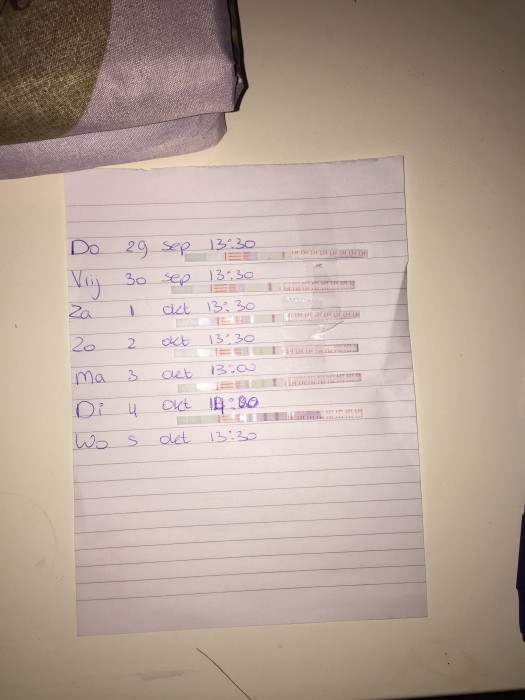 Do 29 sep 13:30
Vrij 30 sep 13:30
Za 1 okt 13:30
Zo 2 okt 13:30
Ma 3 okt 13:00
Di 4 okt
Wo 5 okt 13:30